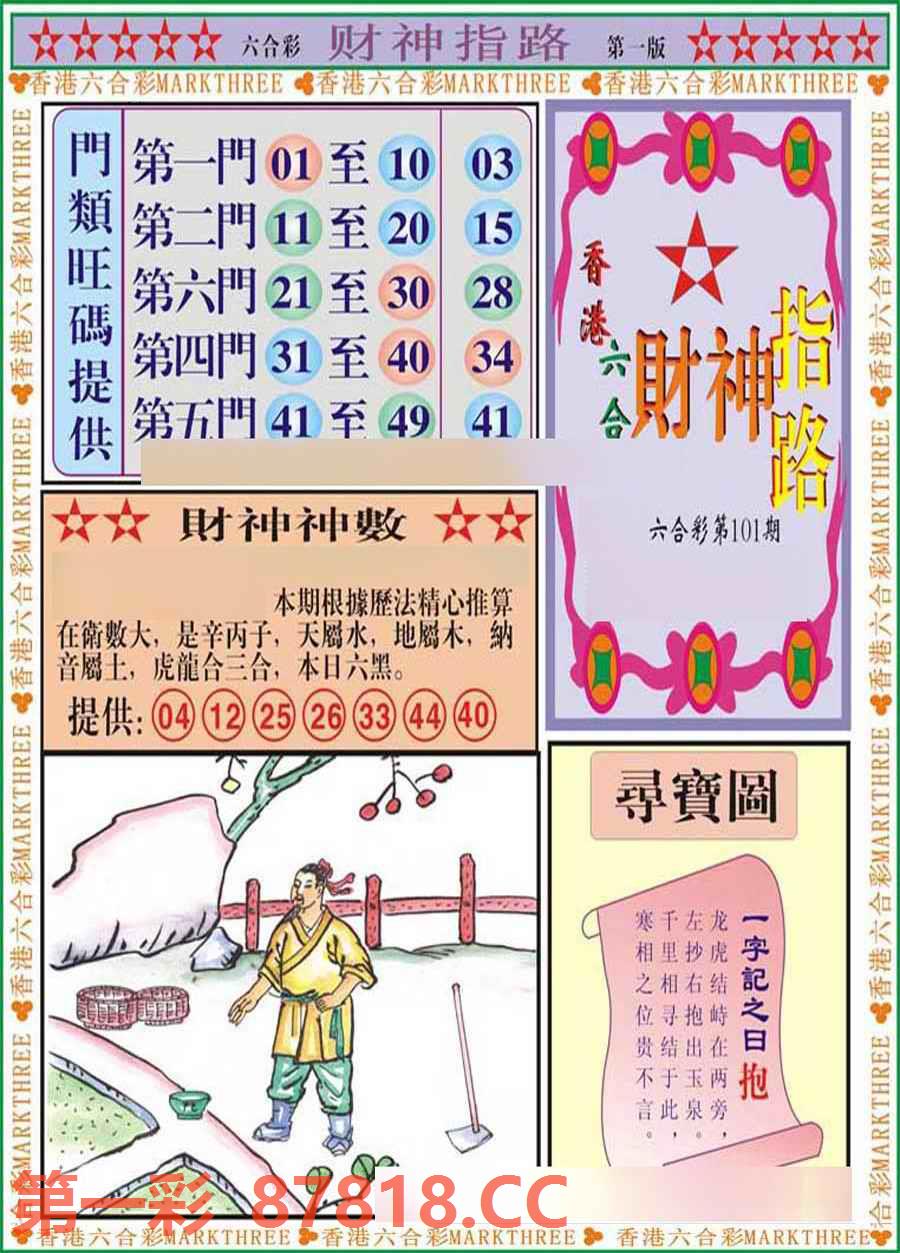 六合彩 财神指路 第一版
香港六合彩MARKTHREE 香港六合彩MARKTHREE 香港六合彩MARKTHREE
門類旺碼提供
第一門 01 至 10 03
第二門 11 至 20 15
第六門 21 至 30 28
第四門 31 至 40 34
第五門 41 至 49 41
香港六合
財神指路
六合彩第101期
財神神數
本期根據歷法精心推算
在衛數大，是辛丙子，天屬水，地屬木，納
音屬土，虎龍合三合，本日六黑。
提供: 04 12 25 26 33 44 40
尋寶圖
一字記之曰 抱
龙虎结峙在两旁，
左抄右抱出玉泉。
千里相寻结于此，
寒相之位贵不言。
香港六合彩MARKTHREE 香港六合彩MARKTHREE 香港六合彩MARKTHREE 香港六合彩MARKTHREE
香港六合彩MARKTHREE 香港六合彩MARKTHREE 香港六合彩MARKTHREE 香港六合彩MARKTHREE
第一彩 87818.CC
香港六合彩MARKTHREE 香港六合彩MARKTHREE 香港六合彩MARKTHREE